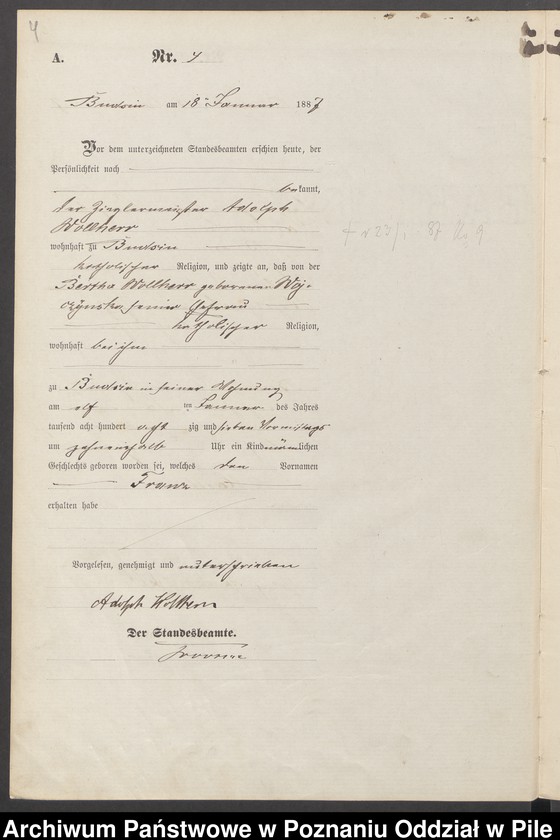 4
A. Nr. 4
Budsin am 18ten Januar 1887
Vor dem unterzeichneten Standesbeamten erschien heute, der
Persönlichkeit nach
bekannt,
der Zieglermeister Adolph
Wollherr
wohnhaft zu Budsin
katholischer Religion, und zeigte an, daß von der
Bertha Wollherr geborenen Woy-
czynska seiner Ehefrau
katholischer Religion,
wohnhaft bei ihm
zu Budsin in seiner Wohnung
am elf ten Januar des Jahres
tausend acht hundert acht zig und sieben Vormittags
um zehneinhalb Uhr ein Kind männlichen
Geschlechts geboren worden sei, welches den Vornamen
Franz
erhalten habe
Vorgelesen, genehmigt und unterschrieben
Adolph Wollherr
Der Standesbeamte.
Archiwum Państwowe w Poznaniu Oddział w Pile